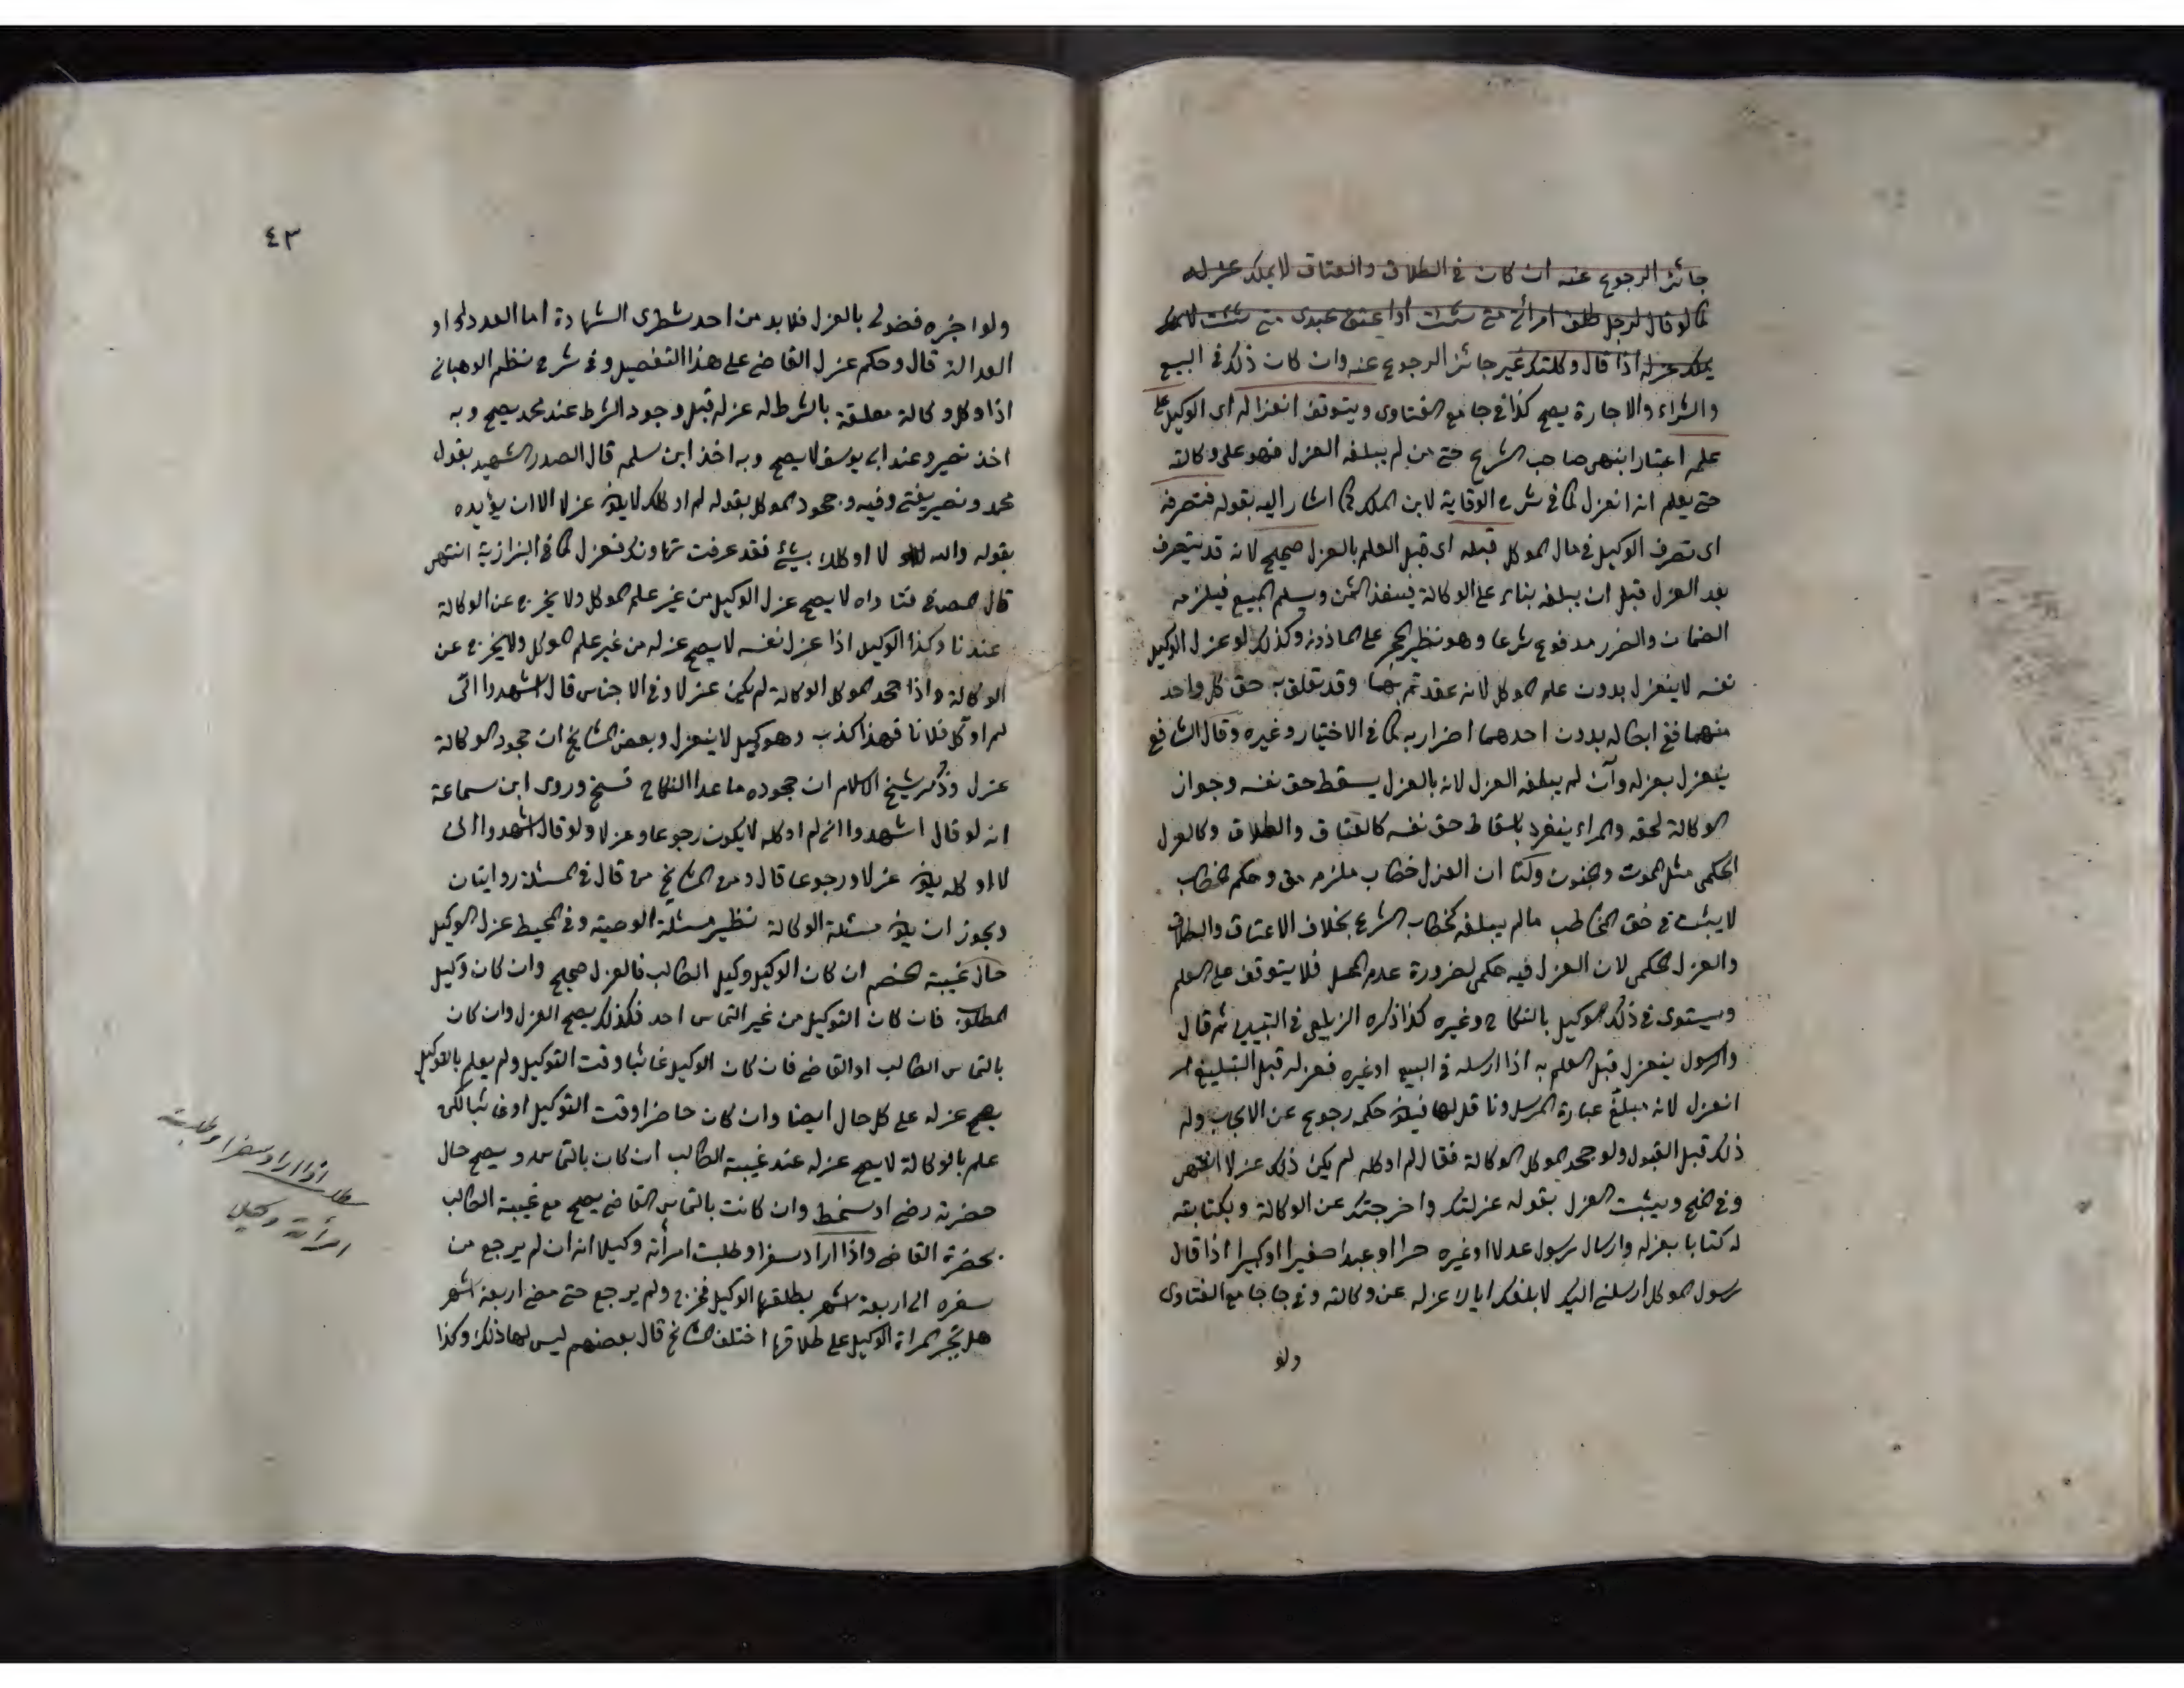 جائز الرجوع عنه ان كان في الطلاق والعتاق لا يملك عزله
كما لو قال لرجل طلق امرأتي متى شئت او اعتق عبدي متى شئت لا يملك
يملك عزله اذا قال وكلتك غير جائز الرجوع عنه وان كان ذلك في البيع
والشراء والاجارة يصح كذا في جامع الفتاوى ويتوقف انعزاله اى الوكيل على
علمه اعتبارا بنهى صاحب الشرع حتى من لم يبلغه العزل فهو على وكالته
حتى يعلم انه انعزل كما في شرح الوقاية لابن الملك كما اشار اليه بقوله فتصرفه
اى تصرف الوكيل في مال الموكل قبله اى قبل العلم بالعزل صحيح لانه قد يتصرف
بعد العزل قبل ان يبلغه بناء على الوكالة فينفذ الثمن ويسلم المبيع فيلزمه
الضمان والضرر مدفوع شرعا وهو نظير الحجر على الماذون وكذلك لو عزل الوكيل
نفسه لا ينعزل بدون علم الموكل لانه عقد تم بهما وقد تعلق به حق كل واحد
منهما ففي ابطاله بدون احدهما اضرار به كما في الاختيار وغيره وقال الشافعي
ينعزل بعزله وان لم يبلغه العزل لانه بالعزل يسقط حق نفسه وجواز
الوكالة لحقه والمرء ينفرد باسقاط حق نفسه كالعتاق والطلاق وكالعزل
الحكمي مثل الموت والجنون ولنا ان العزل خطاب ملزم وحكم الخطاب
لا يثبت في حق المخاطب ما لم يبلغه كخطاب الشرع بخلاف الاعتاق والطلاق
والعزل الحكمي لان العزل فيه حكمي لضرورة عدم المحل فلا يتوقف على العلم
ويستوى في ذلك الوكيل بالنكاح وغيره كذا ذكره الزيلعي في التبيين ثم قال
والرسول ينعزل قبل العلم به اذا ارسله في البيع او غيره فعزله قبل التبليغ
انعزل لانه مبلغ عبارة المرسل وناقل لها فيكون حكمه رجوع عن الايجاب وله
ذلك قبل القبول ولو جحد الموكل الوكالة فقال لم اوكله لم يكن ذلك عزلا انتهى
وفي المنح ويثبت العزل بقوله عزلتك واخرجتك عن الوكالة وبكتابته
له كتابا بعزله وارسال رسول عدلا او غيره حرا او عبدا صغيرا او كبيرا اذا قال
رسول الموكل ارسلني اليك لابلغك اياك عزله عن وكالته وفي جامع الفتاوى
ولو
٤٣
ولو اخبره فضولي بالعزل فلا بد من احد شطرى الشهادة اما العدد او
العدالة قال وحكم عزل القاضي على هذا التفصيل وفي شرح نظم الوهباني
اذا وكل وكالة معلقة بالشرط له عزله قبل وجود الشرط عند محمد يصح وبه
اخذ نصير وعند ابى يوسف لا يصح وبه اخذ ابن سلمه قال الصدر الشهيد بقول
محمد ونصير يفتى وفيه وجحود الموكل بقوله لم اوكلك لا يكون عزلا الا ان يؤيده
بقوله والله لا اوكلك بشيء فقد عرفت تهاونك فعزل كما في البزازية انتهى
قال المص في فتاواه لا يصح عزل الوكيل من غير علم الموكل ولا يخرج عن الوكالة
عندنا وكذا الوكيل اذا عزل نفسه لا يصح عزله من غير علم الموكل ولا يخرج عن
الوكالة واذا جحد الموكل الوكالة لم يكن عزلا وفي الاجناس قال اشهدوا انى
لم اوكل فلانا فهذا كذب وهو كيل لا ينعزل وبعض المشايخ ان جحود الوكالة
عزل وذكر شيخ الاسلام ان جحوده ما عدا النكاح فسخ وروى ابن سماعة
انه لو قال اشهدوا انى لم اوكله لا يكون رجوعا وعزلا ولو قال اشهدوا انى
لا اوكله يكون عزلا ورجوعا قال ومن المشايخ من قال في المسئلة روايتان
ويجوز ان يكون مسئلة الوكالة نظير مسئلة الوصية وفي المحيط عزل الوكيل
حال غيبة الخصم ان كان الوكيل وكيل الطالب فالعزل صحيح وان كان وكيل
المطلوب فان كان التوكيل من غير التماس احد فكذلك يصح العزل وان كان
بالتماس الطالب او القاضي فان كان الوكيل غائبا وقت التوكيل ولم يعلم بالتوكيل
يصح عزله على كل حال ايضا وان كان حاضرا وقت التوكيل او غائبا لكن
علم بالوكالة لا يصح عزله عند غيبة الطالب ان كان بالتماسه ويصح حال
حضرته رضي او سخط وان كانت بالتماس القاضي يصح مع غيبة الطالب
بحضرة القاضي واذا اراد سفرا وطلبت امرأته وكيلا انه ان لم يرجع من
سفره الى اربعة اشهر يطلقها الوكيل فخرج ولم يرجع حتى مضى اربعة اشهر
هل تجبر المراة الوكيل على طلاقها اختلف المشايخ قال بعضهم ليس لها ذلك وكذا
مطلب اذا اراد سفرا وطلبت
امرأته وكيلا